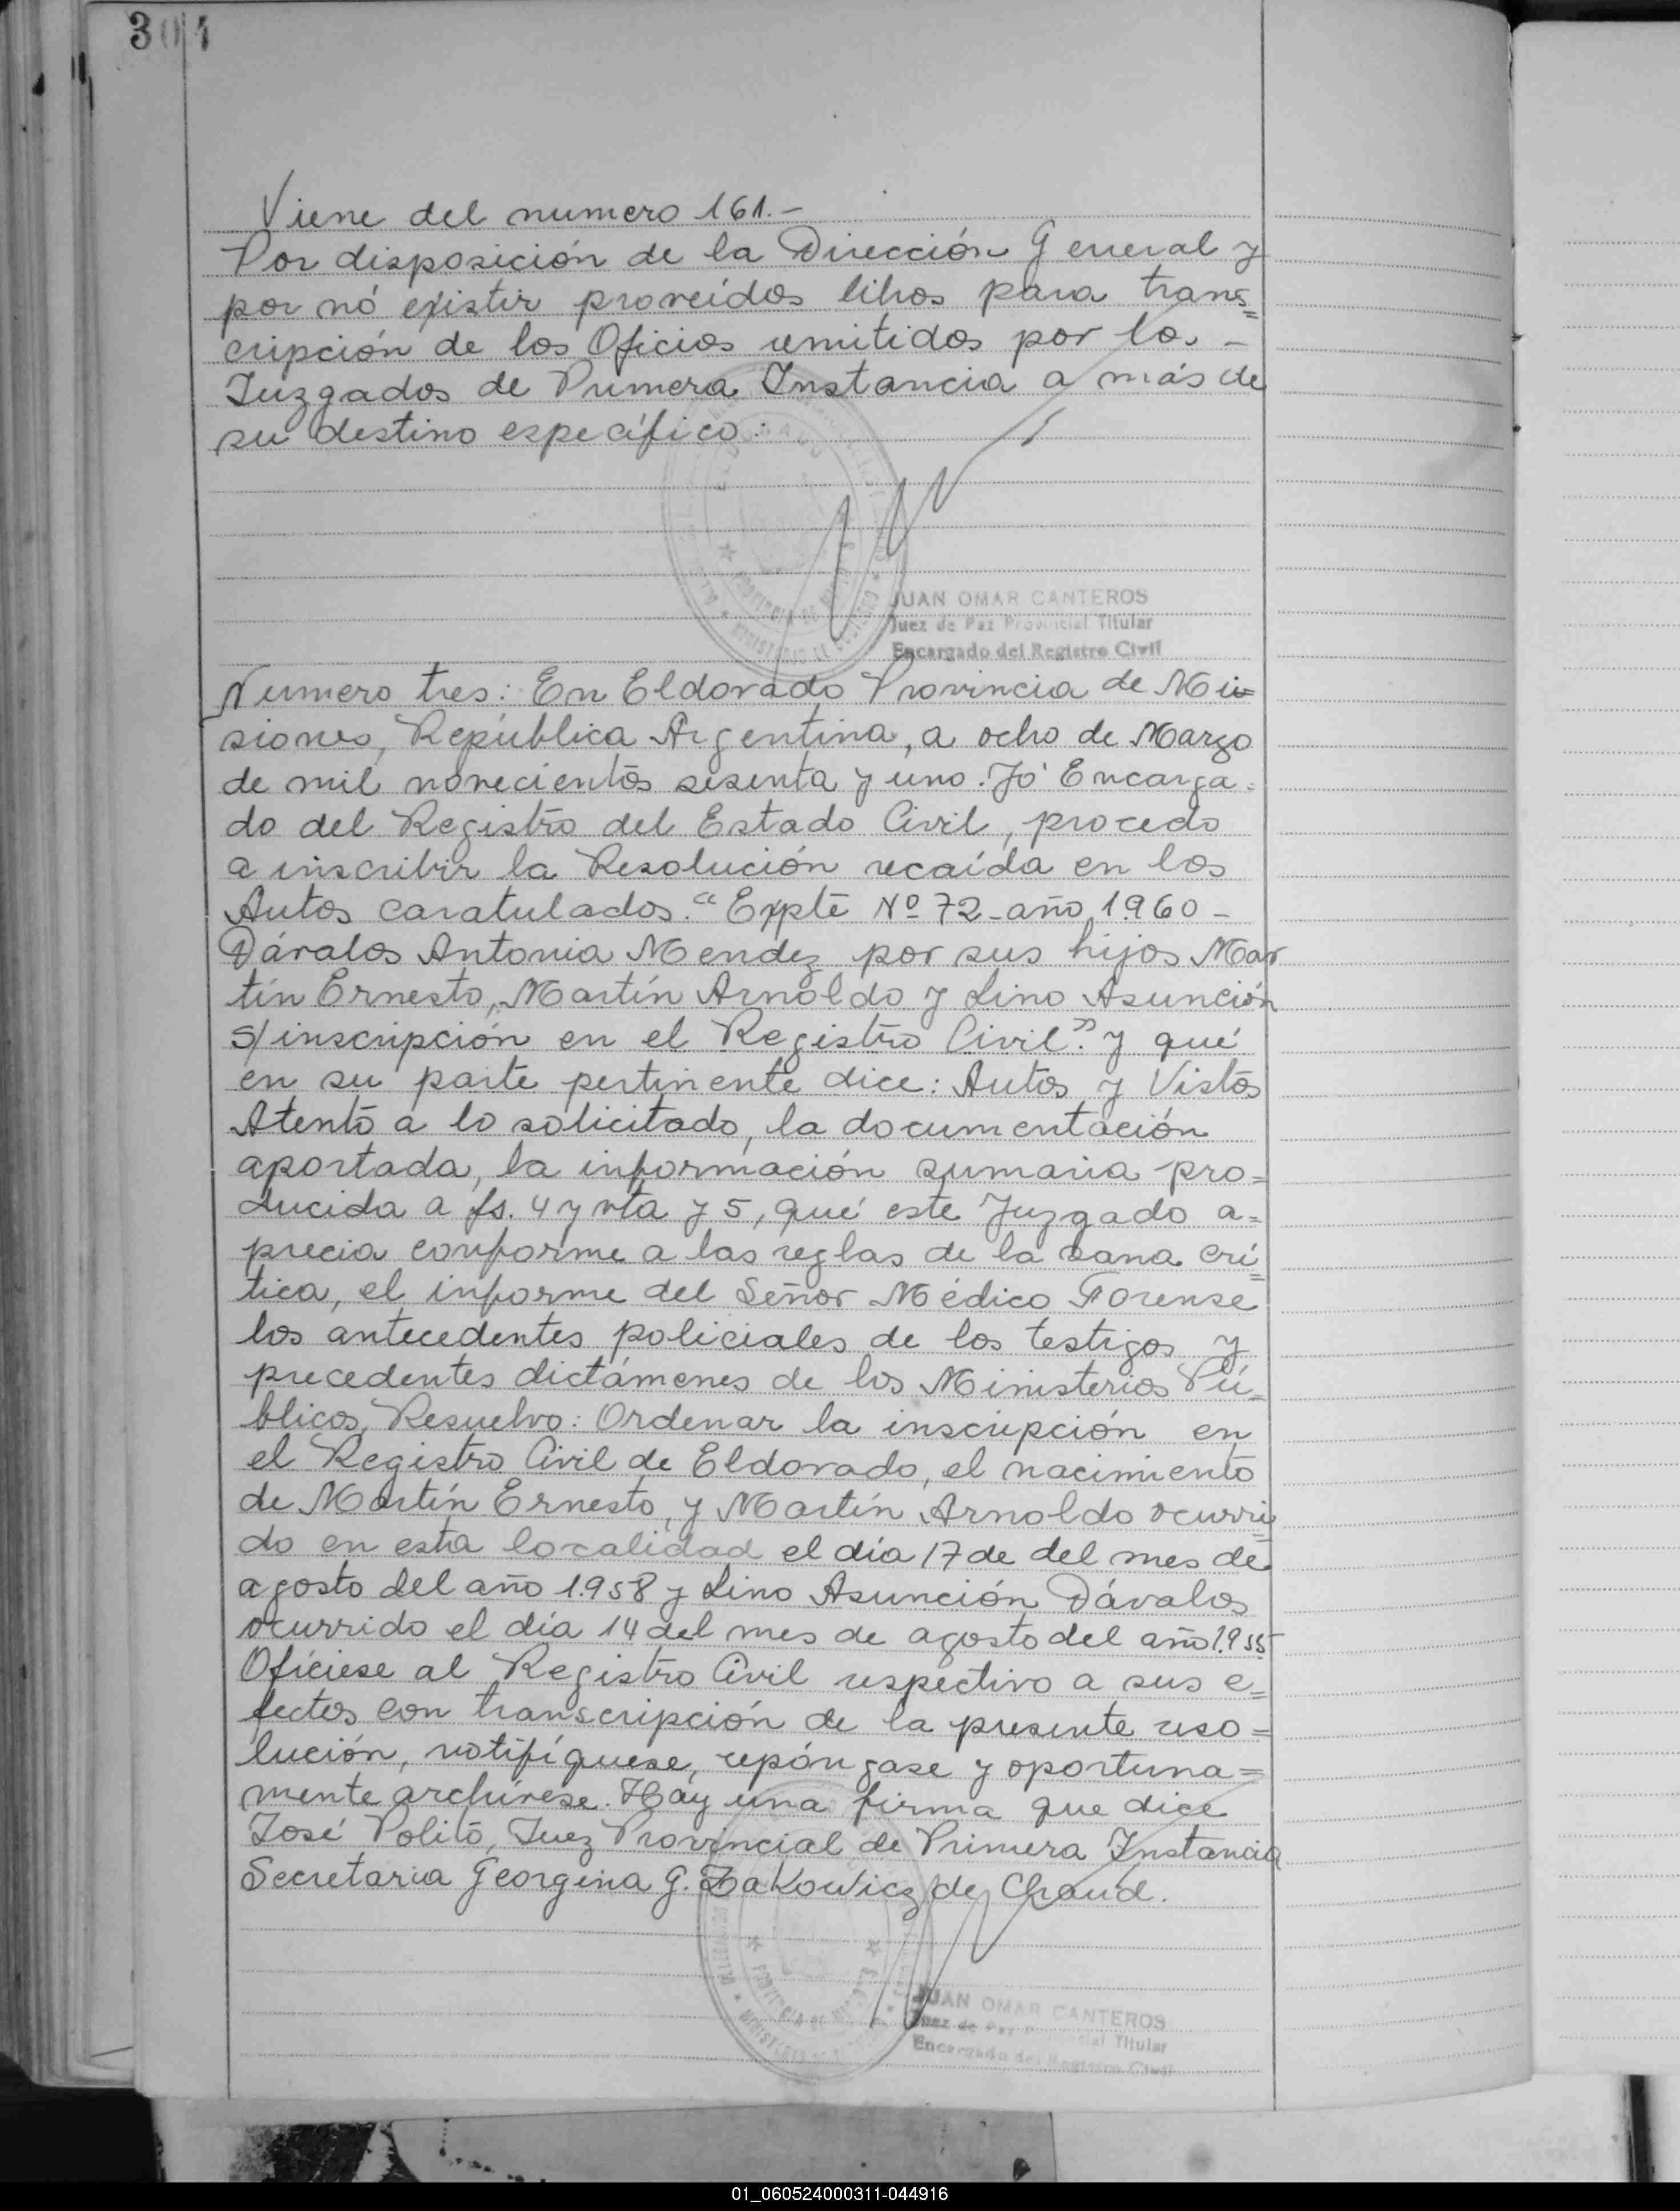 304
Viene del numero 161.-
Por disposición de la Dirección General y
por nó existir proveídos libros para trans=
cripción de los Oficios remitidos por los -
Juzgados de Primera Instancia a más de
su destino específico:
JUAN OMAR CANTEROS
Juez de Paz Provincial Titular
Encargado del Registro Civil
Numero tres: En Eldorado Provincia de Mi=
siones, República Argentina, a ocho de Marzo
de mil novecientos sesenta y uno. Yó Encarga=
do del Registro del Estado Civil, procedo
a inscribir la Resolución recaída en los
Autos caratulados. "Expte Nº 72-año 1.960-
Dávalos Antonia Mendez por sus hijos Mar
tín Ernesto, Martín Arnoldo y Lino Asunción
S/inscripción en el Registro Civil". y qué
en su parte pertinente dice: Autos y Vistos
Atento a lo solicitado, la documentación
aportada, la información sumaria pro=
ducida a fs. 4 y vta y 5, qué este Juzgado a=
precia conforme a las reglas de la sana crí=
tica, el informe del Señor Médico Forense
los antecedentes policiales de los testigos y
precedentes dictámenes de los Ministerios Pú=
blicos, Resuelvo: Ordenar la inscripción en
el Registro Civil de Eldorado, el nacimiento
de Martín Ernesto, y Martín Arnoldo ocurri=
do en esta localidad el día 17 de del mes de
agosto del año 1.958 y Lino Asunción Dávalos
ocurrido el día 14 del mes de agosto del año 1.955
Ofíciese al Registro Civil respectivo a sus e=
fectos con transcripción de la presente reso=
lución, notifíquese, repóngase y oportuna=
mente archívese. Hay una firma que dice
José Polito, Juez Provincial de Primera Instancia
Secretaria Georgina G. Zakowicz de Chaud.
PROVINCIA DE MISIONES
JUAN OMAR CANTEROS
Juez de Paz Provincial Titular
Encargado del Registro Civil
01_060524000311-044916